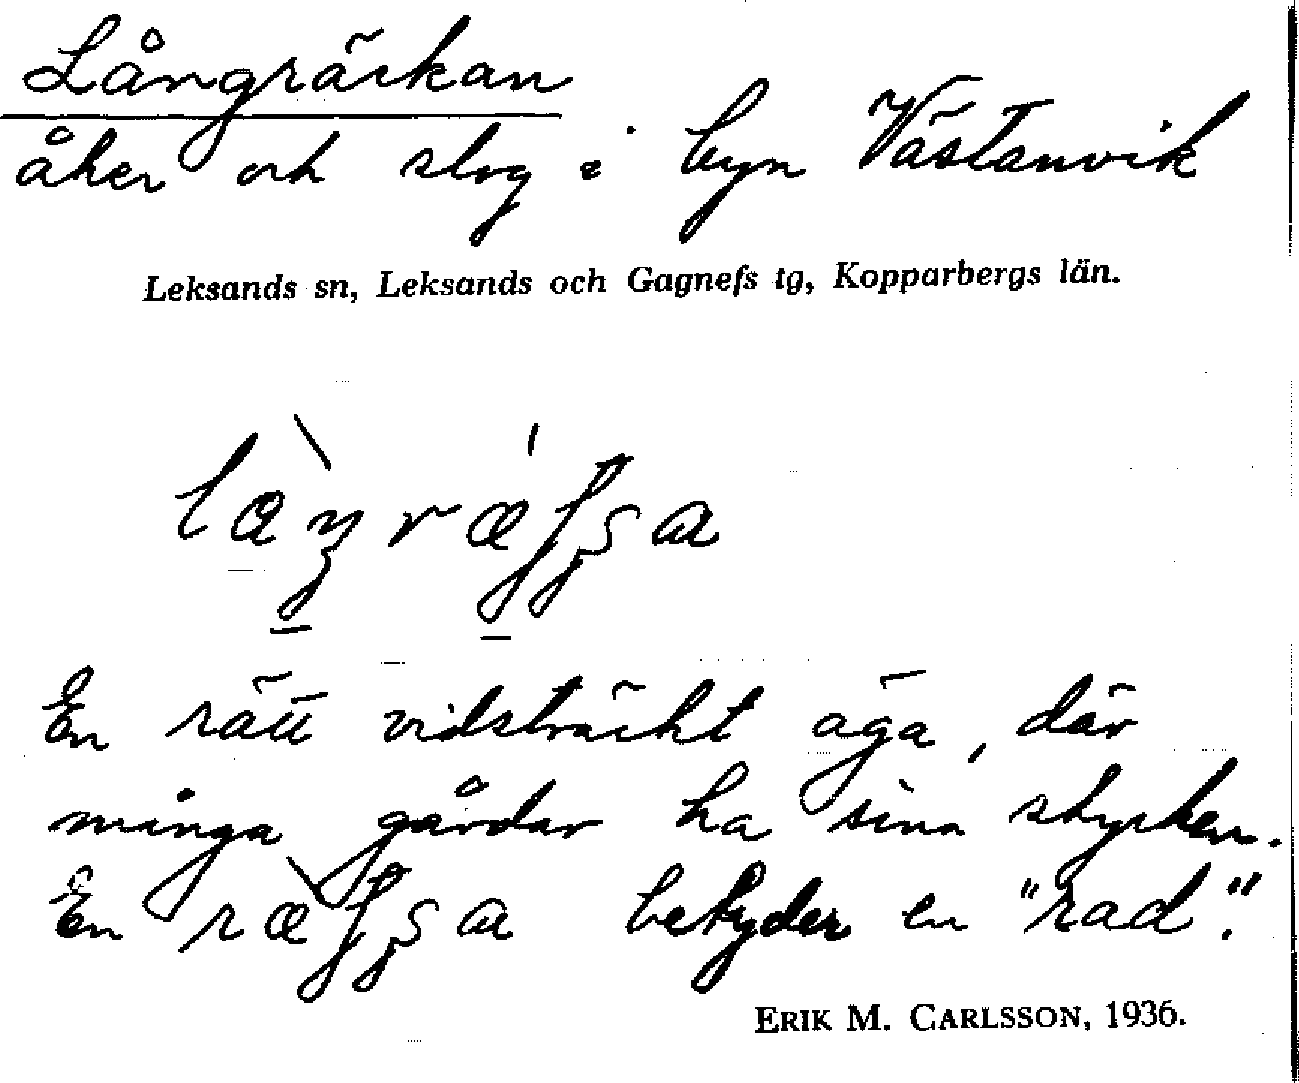 Långräckan
åker och slog i byn Västanvik
Leksands sn, Leksands och Gagnefs tg, Kopparbergs län.
En rätt vidsträckt äga, där
många gårdar ha sina stycken.
En betyder en "rad".
ERIK M. CARLSSON, 1936.